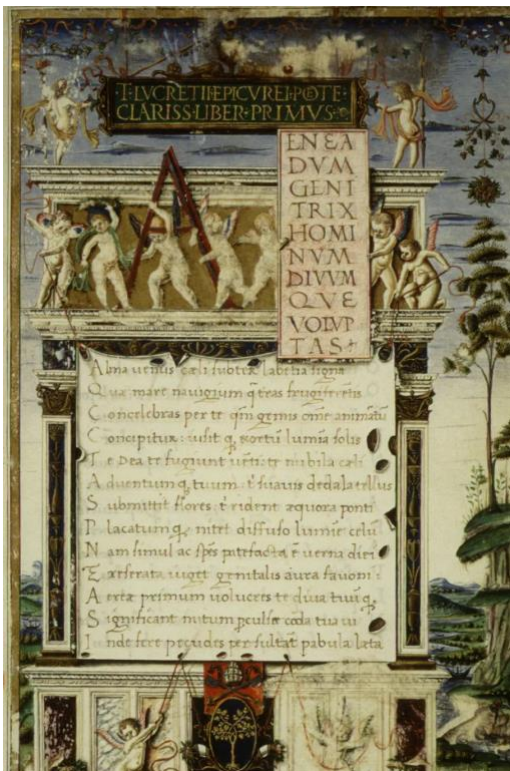 T·LVCRETII·EPICVREI·POETE·
CLARISS·LIBER·PRIMVS·
A
ENEA
DVM
GENI
TRIX
HOMI
NVM
DIVVM
QVE
VOLVP
TAS
Alma venus cæli subter labētia signa
Quæ mare navigerum q̄ terras frugiferētis
Concelebras per te qm̄ genus om̄e animātū
Concipitur: visit q; exortū lumīa solis
Te Dea te fugiunt vēti: te nubila cæli
Aduentum q; tuum: t' suavis dedala tellus
Submittit flores: t' rident æquora ponti
Placatum q; nitet diffuso lumīe celū
Nam simul ac spēs patefacta ē verna diei
Exreserata viget genitalis aura favoni
Aeriæ primum volucres te diva tuū q;
Significant initum pculsæ corda tua vi
Inde feræ pecudes persultāt pabula læta